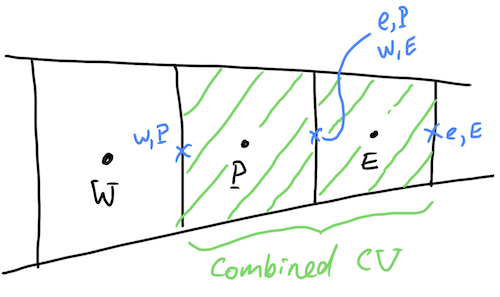 e,P
W,E
w,P
e,E
W
P
E
Combined CV